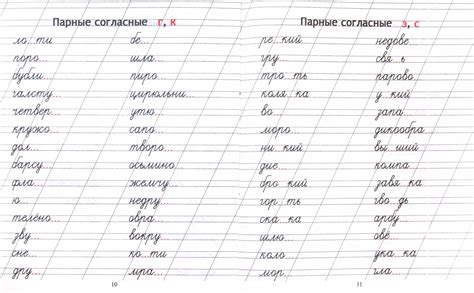 Парные согласные г, к
ло...ти
поро...
бубли...
галсту...
четвер...
кружо...
дол...
барсу...
фла...
ю...
телёно...
зву...
сне...
дру...
бе...
шла...
пиро...
цирюльни...
утю...
сапо...
творо...
осьмино...
жемчу...
недру...
овра...
вокру...
ко...ти
мра...
10
Парные согласные з, с
ре...кий
гру...
тро...ть
коля...ка
во...
моро...
ни...кий
дие...
бро...кий
гор...ть
ска...ка
шлю...
коло...
мор...
недове...
свя...ь
парово...
у...кий
запа...
дикообра...
вы...ший
компа...
завя...ка
гво...дь
арбу...
овё...
ука...ка
гла...
11